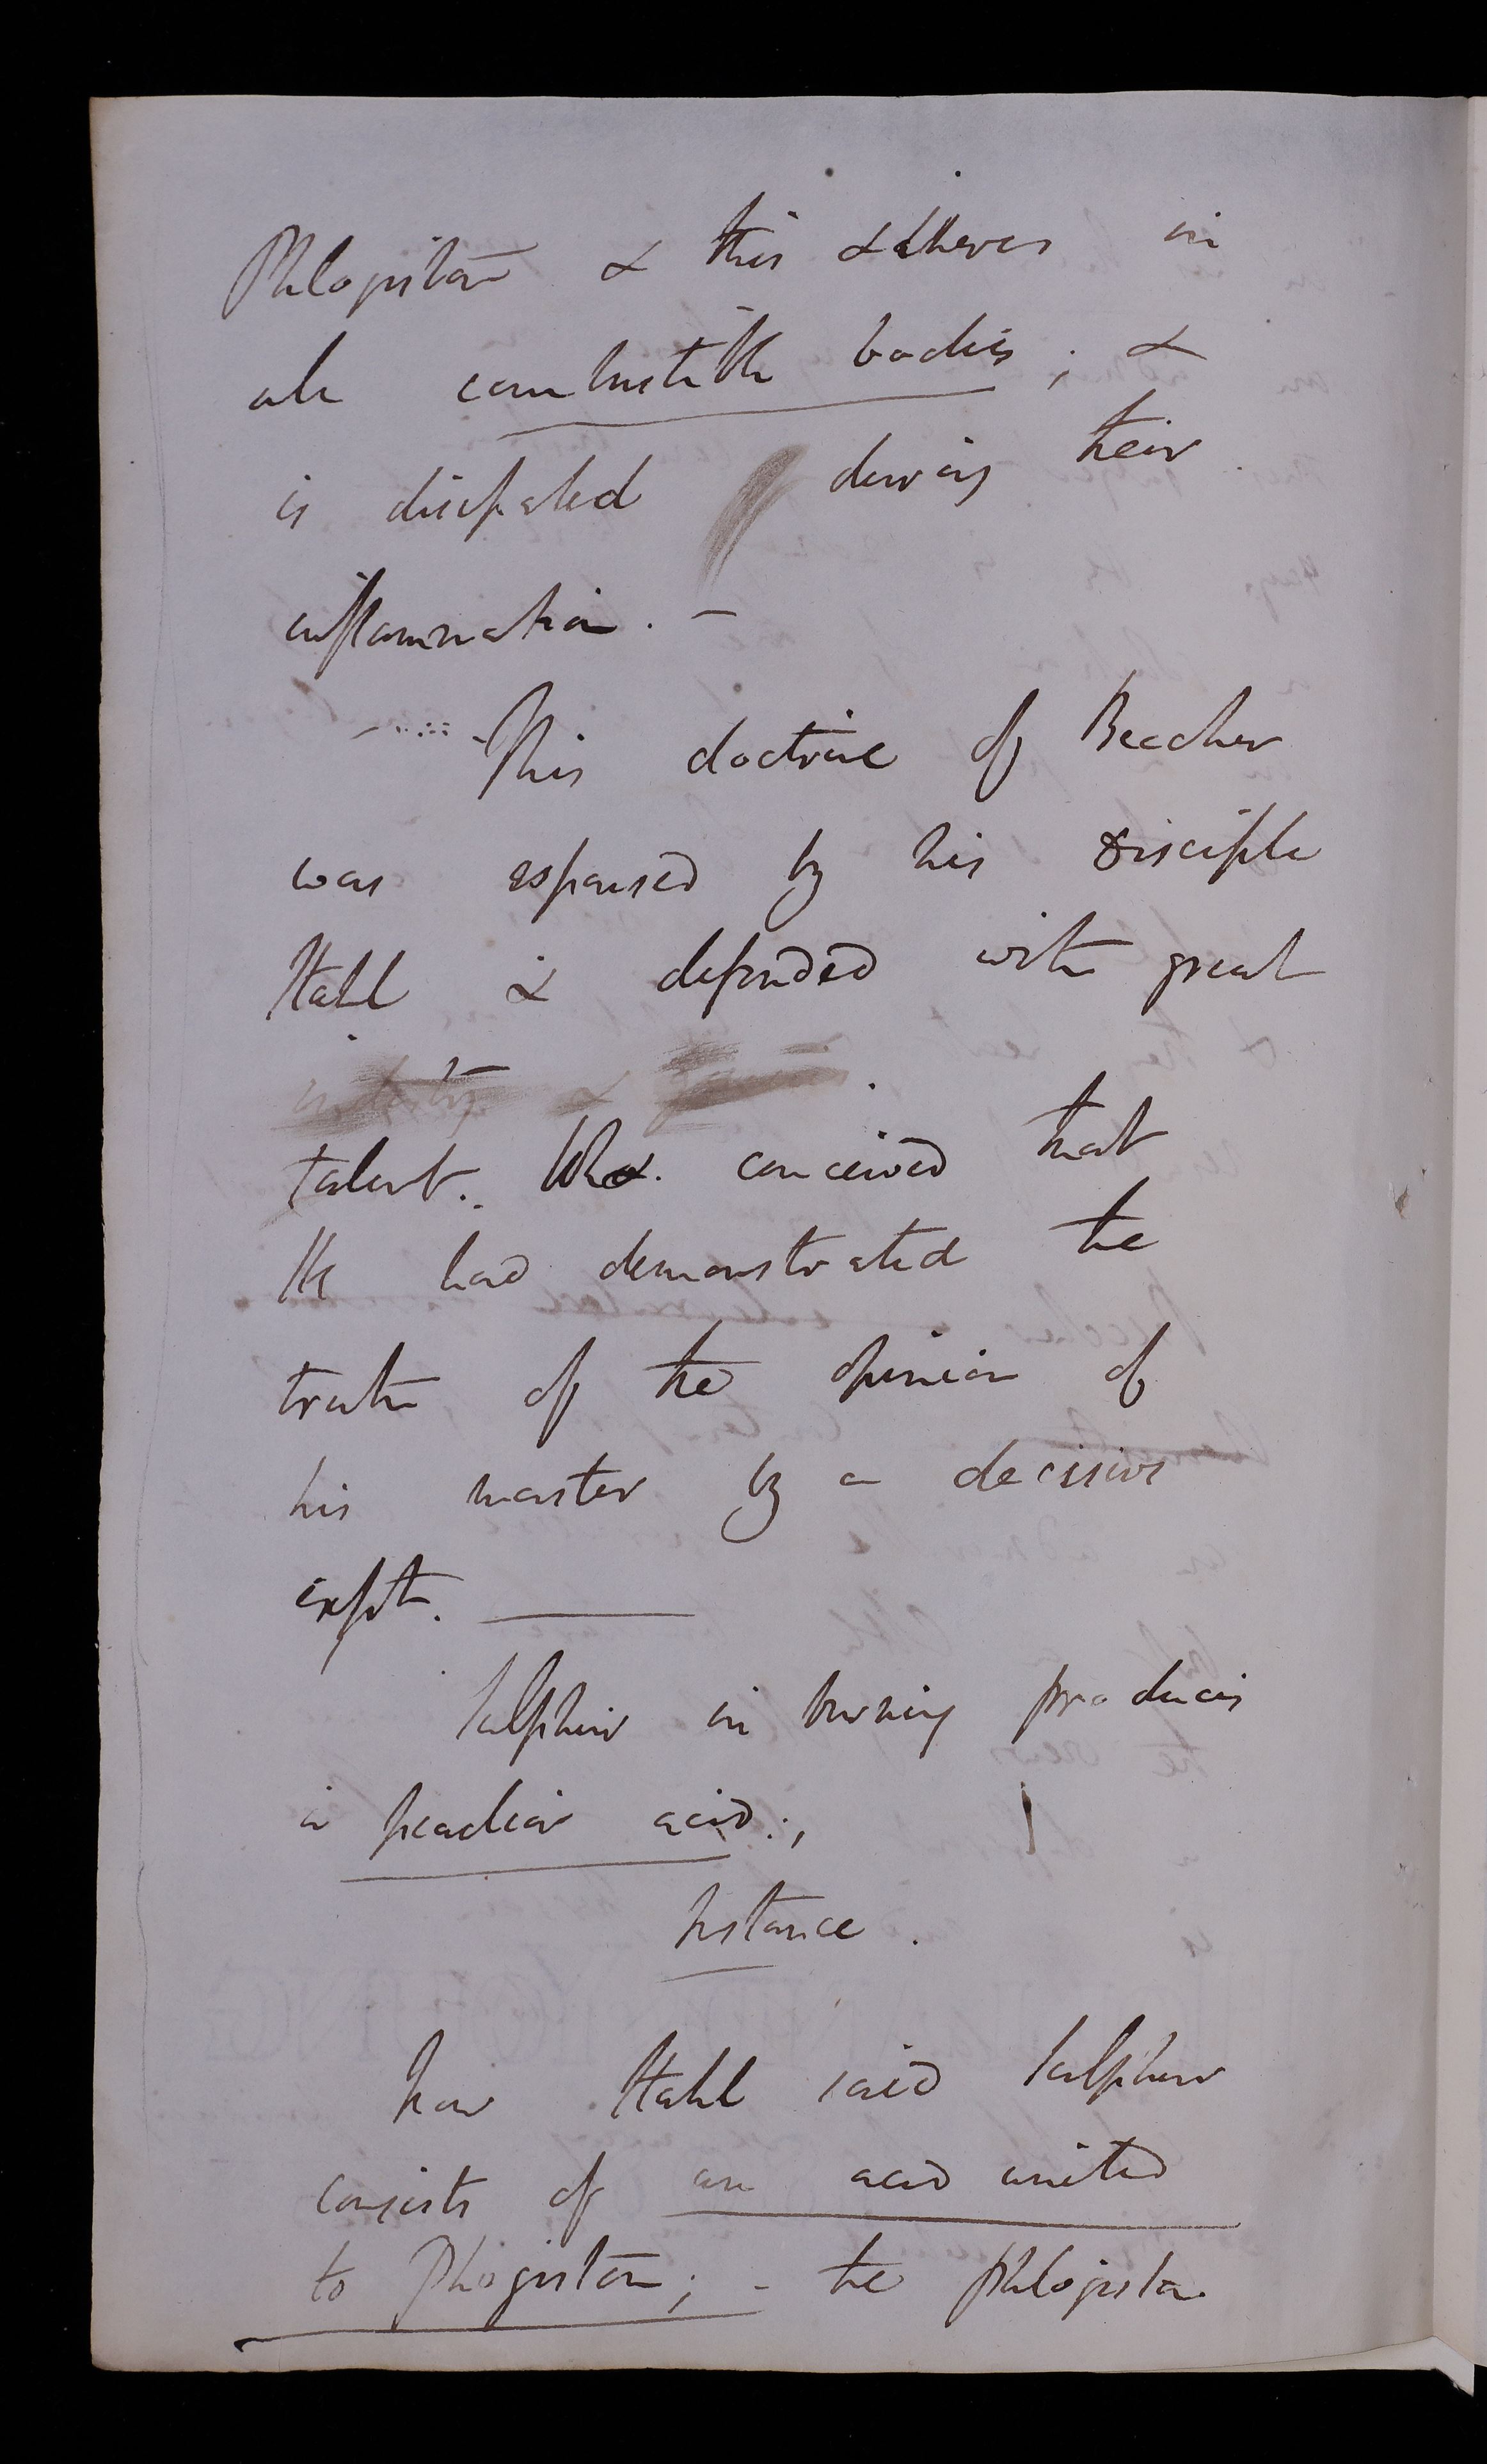 Phlogiston & this adheres in
all combustible bodies; &
is disipated during their
inflammation. —
This doctrine of Beccher
was espoused by his disciple
Stahl & defended with great
talent. Who conceived that
He had demonstrated the
truth of the opinion of
his master by a decisive
expt. —
Sulphur in burning produces
a peculiar acid;
Instance.
Now Stahl said Sulphur
consists of an acid united
to Phlogiston; - the phlogiston